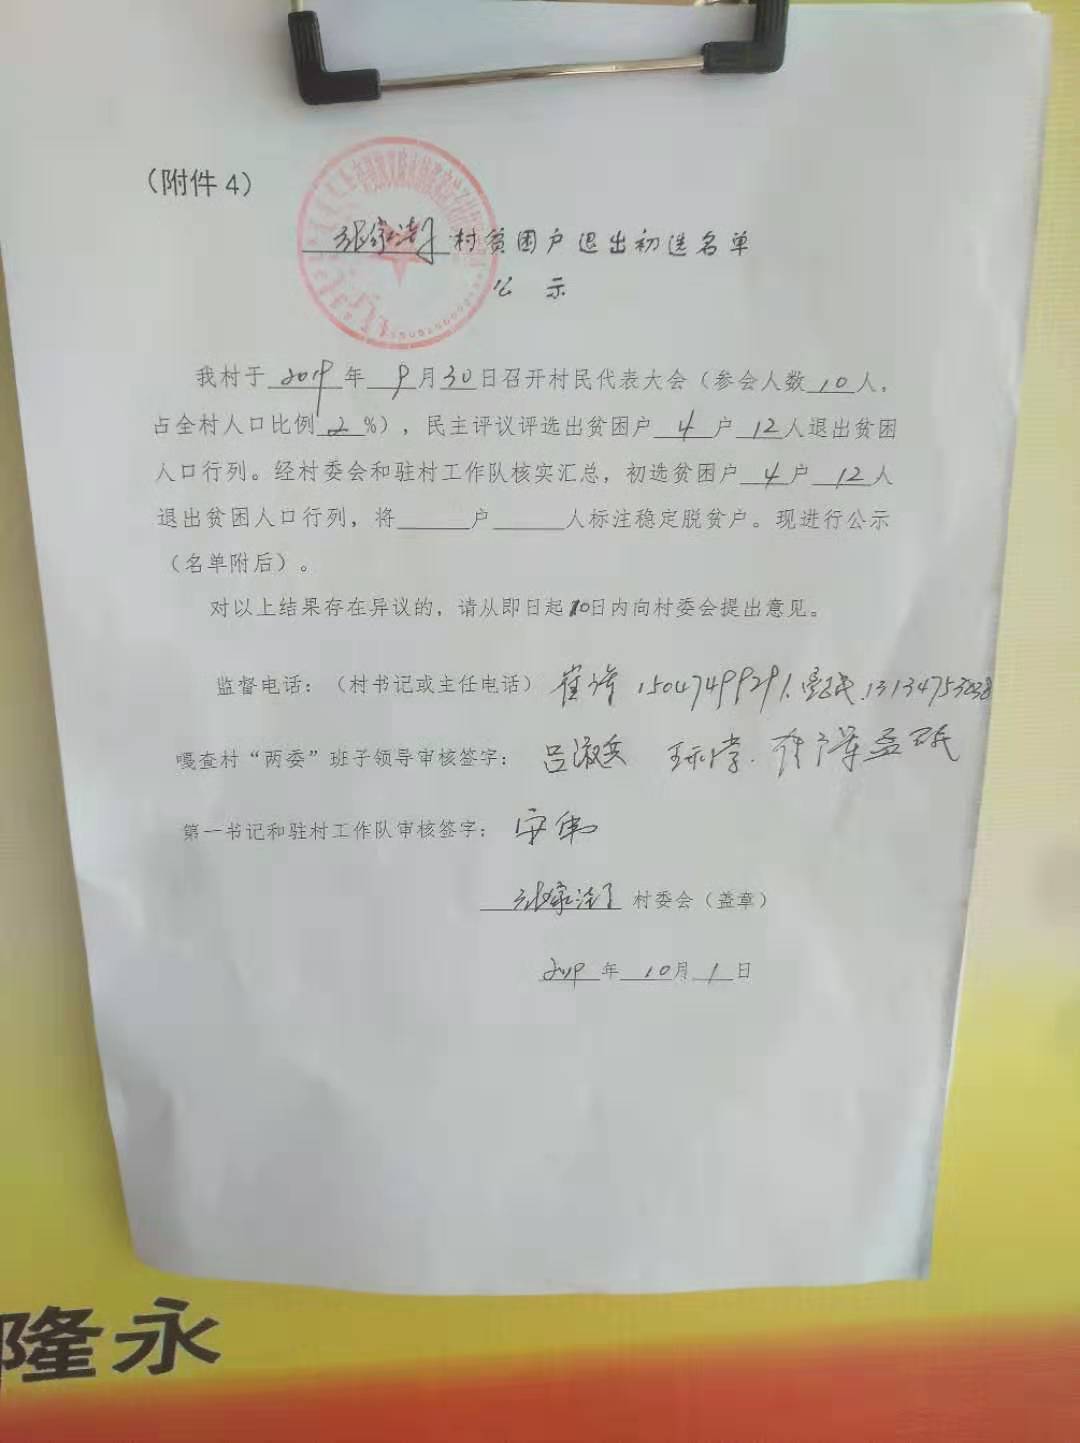 （附件 4）
张家湾子村贫困户退出初选名单
公 示
我村于 2019 年 9 月 30 日召开村民代表大会（参会人数 10 人，
占全村人口比例 2 %），民主评议评选出贫困户 4 户 12 人退出贫困
人口行列。经村委会和驻村工作队核实汇总，初选贫困户 4 户 12 人
退出贫困人口行列，将______户______人标注稳定脱贫户。现进行公示
（名单附后）。
对以上结果存在异议的，请从即日起10日内向村委会提出意见。
监督电话：（村书记或主任电话） 15047499291 13134753038
嘎查村“两委”班子领导审核签字： 吕淑英
第一书记和驻村工作队审核签字： 安伟
村委会（盖章）
2019 年 10 月 1 日
隆永